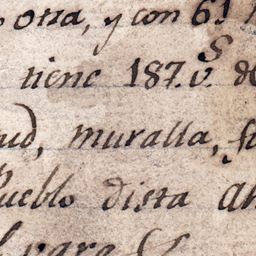 otra, y con 61
tiene 187.v.s de
ud, muralla, fo
Pueblo dista ah
vara